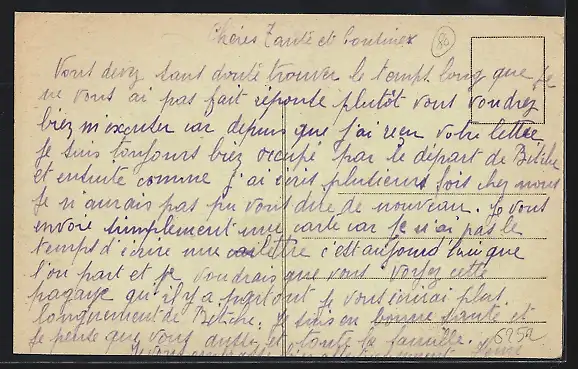 Chères Tante et Cousines
80
Vous devez sans doute trouver le temps long que je
ne vous ai pas fait réponse plutôt vous voudrez
biez m'excuser car depuis que j'ai reçu votre lettre
Je suis toujours biez occupé par le départ de Bitche
et ensuite comme j'ai écris plusieurs fois chez nous
Je n'aurais pas pu vous dire de nouveau. Je vous
envoie simplement une carte car Je n'ai pas le
temps d'écrire une lettre c'est aujourd'hui que
l'on part et je voudrais que vous voyez cette
pagaye qu'il y a partout Je vous écrirai plus
longuement de Bitche. Je suis en bonne santé et
Je pense que vous aussi et toute la famille.
6252
Je vous embrasse